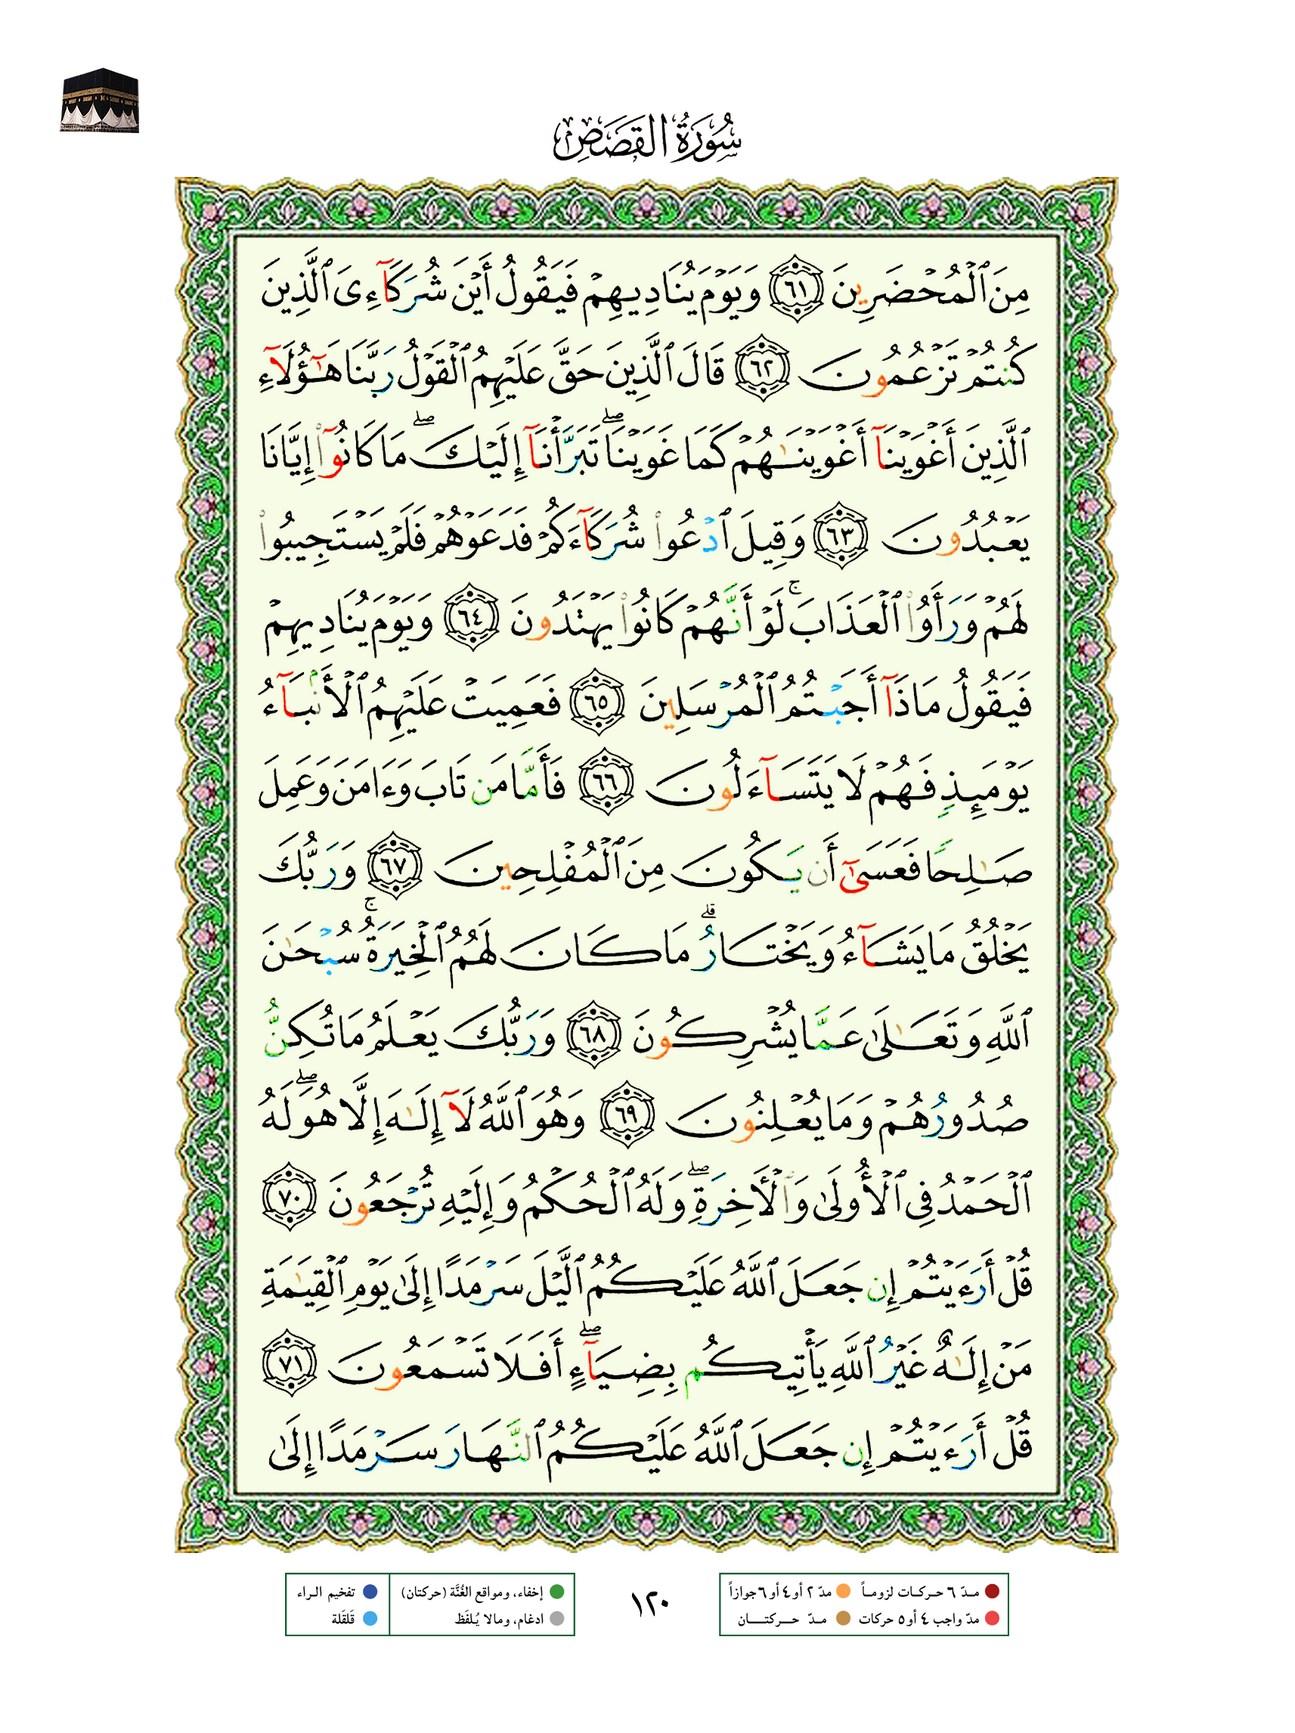 سُورَةُ القَصَصِ
مِنَ ٱلْمُحْضَرِينَ ٦١ وَيَوْمَ يُنَادِيهِمْ فَيَقُولُ أَيْنَ شُرَكَآءِىَ ٱلَّذِينَ
كُنتُمْ تَزْعُمُونَ ٦٢ قَالَ ٱلَّذِينَ حَقَّ عَلَيْهِمُ ٱلْقَوْلُ رَبَّنَا هَـٰٓؤُلَآءِ
ٱلَّذِينَ أَغْوَيْنَآ أَغْوَيْنَـٰهُمْ كَمَا غَوَيْنَا ۖ تَبَرَّأْنَآ إِلَيْكَ ۖ مَا كَانُوٓا۟ إِيَّانَا
يَعْبُدُونَ ٦٣ وَقِيلَ ٱدْعُوا۟ شُرَكَآءَكُمْ فَدَعَوْهُمْ فَلَمْ يَسْتَجِيبُوا۟
لَهُمْ وَرَأَوُا۟ ٱلْعَذَابَ ۚ لَوْ أَنَّهُمْ كَانُوا۟ يَهْتَدُونَ ٦٤ وَيَوْمَ يُنَادِيهِمْ
فَيَقُولُ مَاذَآ أَجَبْتُمُ ٱلْمُرْسَلِينَ ٦٥ فَعَمِيَتْ عَلَيْهِمُ ٱلْأَنۢبَآءُ
يَوْمَئِذٍ فَهُمْ لَا يَتَسَآءَلُونَ ٦٦ فَأَمَّا مَن تَابَ وَءَامَنَ وَعَمِلَ
صَـٰلِحًا فَعَسَىٰٓ أَن يَكُونَ مِنَ ٱلْمُفْلِحِينَ ٦٧ وَرَبُّكَ
يَخْلُقُ مَا يَشَآءُ وَيَخْتَارُ ۗ مَا كَانَ لَهُمُ ٱلْخِيَرَةُ ۚ سُبْحَـٰنَ
ٱللَّهِ وَتَعَـٰلَىٰ عَمَّا يُشْرِكُونَ ٦٨ وَرَبُّكَ يَعْلَمُ مَا تُكِنُّ
صُدُورُهُمْ وَمَا يُعْلِنُونَ ٦٩ وَهُوَ ٱللَّهُ لَآ إِلَـٰهَ إِلَّا هُوَ ۖ لَهُ
ٱلْحَمْدُ فِى ٱلْأُولَىٰ وَٱلْـَٔاخِرَةِ ۖ وَلَهُ ٱلْحُكْمُ وَإِلَيْهِ تُرْجَعُونَ ٧٠
قُلْ أَرَءَيْتُمْ إِن جَعَلَ ٱللَّهُ عَلَيْكُمُ ٱلَّيْلَ سَرْمَدًا إِلَىٰ يَوْمِ ٱلْقِيَـٰمَةِ
مَنْ إِلَـٰهٌ غَيْرُ ٱللَّهِ يَأْتِيكُم بِضِيَآءٍ ۖ أَفَلَا تَسْمَعُونَ ٧١
قُلْ أَرَءَيْتُمْ إِن جَعَلَ ٱللَّهُ عَلَيْكُمُ ٱلنَّهَارَ سَرْمَدًا إِلَىٰ
مدّ ٦ حركات لزوماً مدّ ٢ أو ٤ أو ٦ جوازاً
مدّ واجب ٤ أو ٥ حركات مدّ حركتان
١٢٠
إخفاء، ومواقع الغُنَّة (حركتان) تفخيم الراء
ادغام، ومالا يُلفَظ قلقلة